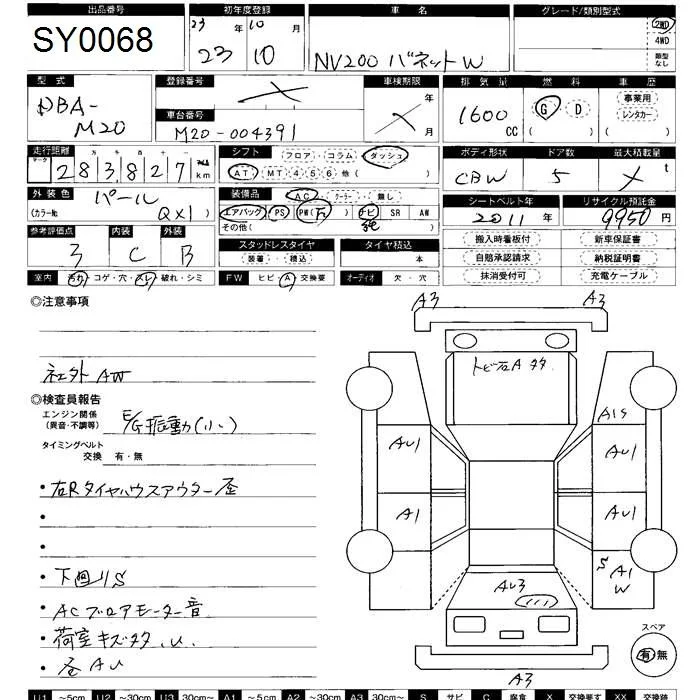 出品番号 初年度登録 車名 グレード/類別型式
SY0068
23年 10月
23 10
NV200 バネット W
2WD
4WD
類型なし
型式 登録番号 車検期限 排気量 燃料 車歴
DBA-
M20
車台番号
M20-004391
年
月
1600
CC
G D
( )
事業用
レンタカー
( )
走行距離 シフト フロア・コラム・ダッシュ ボディ形状 ドア数 最大積載量
マーク 283827 km
AT MT 4 5 6 他( )
CBW 5 t
外装色 パール
(カラーNo QX1)
装備品 AC クーラー 無し
エアバッグ PS PW( ) ナビ SR AW
その他( )
純
シートベルト年 リサイクル預託金
2011年 9950円
参考評価点 内装 外装
3 C B
スタッドレスタイヤ タイヤ積込
装着・積込 本
搬入時看板付 新車保証書
自賠承認請求 納税証明書
抹消受付可 充電ケーブル
室内 汚れ コゲ・穴・スレ 破れ・シミ FW ヒビ・A・交換要 オーディオ 欠・穴
◎注意事項
社外 AW
◎検査員報告
エンジン関係
(異音・不調等) E/G振動(小)
タイミングベルト
交換 有・無
・右Rタイヤハウスアウター歪
・
・
・下回りS
・ACブロアモーター音
・荷室キズタタ.U.
・歪AU
A3 A3
トビ石A タタ
A1S
AU1 AU1
A1 AU1
S A1
W
AU3
A3
スペア
有 無
U1 ~5cm U2 ~30cm U3 30cm~ A1 ~5cm A2 ~30cm A3 30cm~ S サビ C 腐食 X 交換要す XX 交換跡